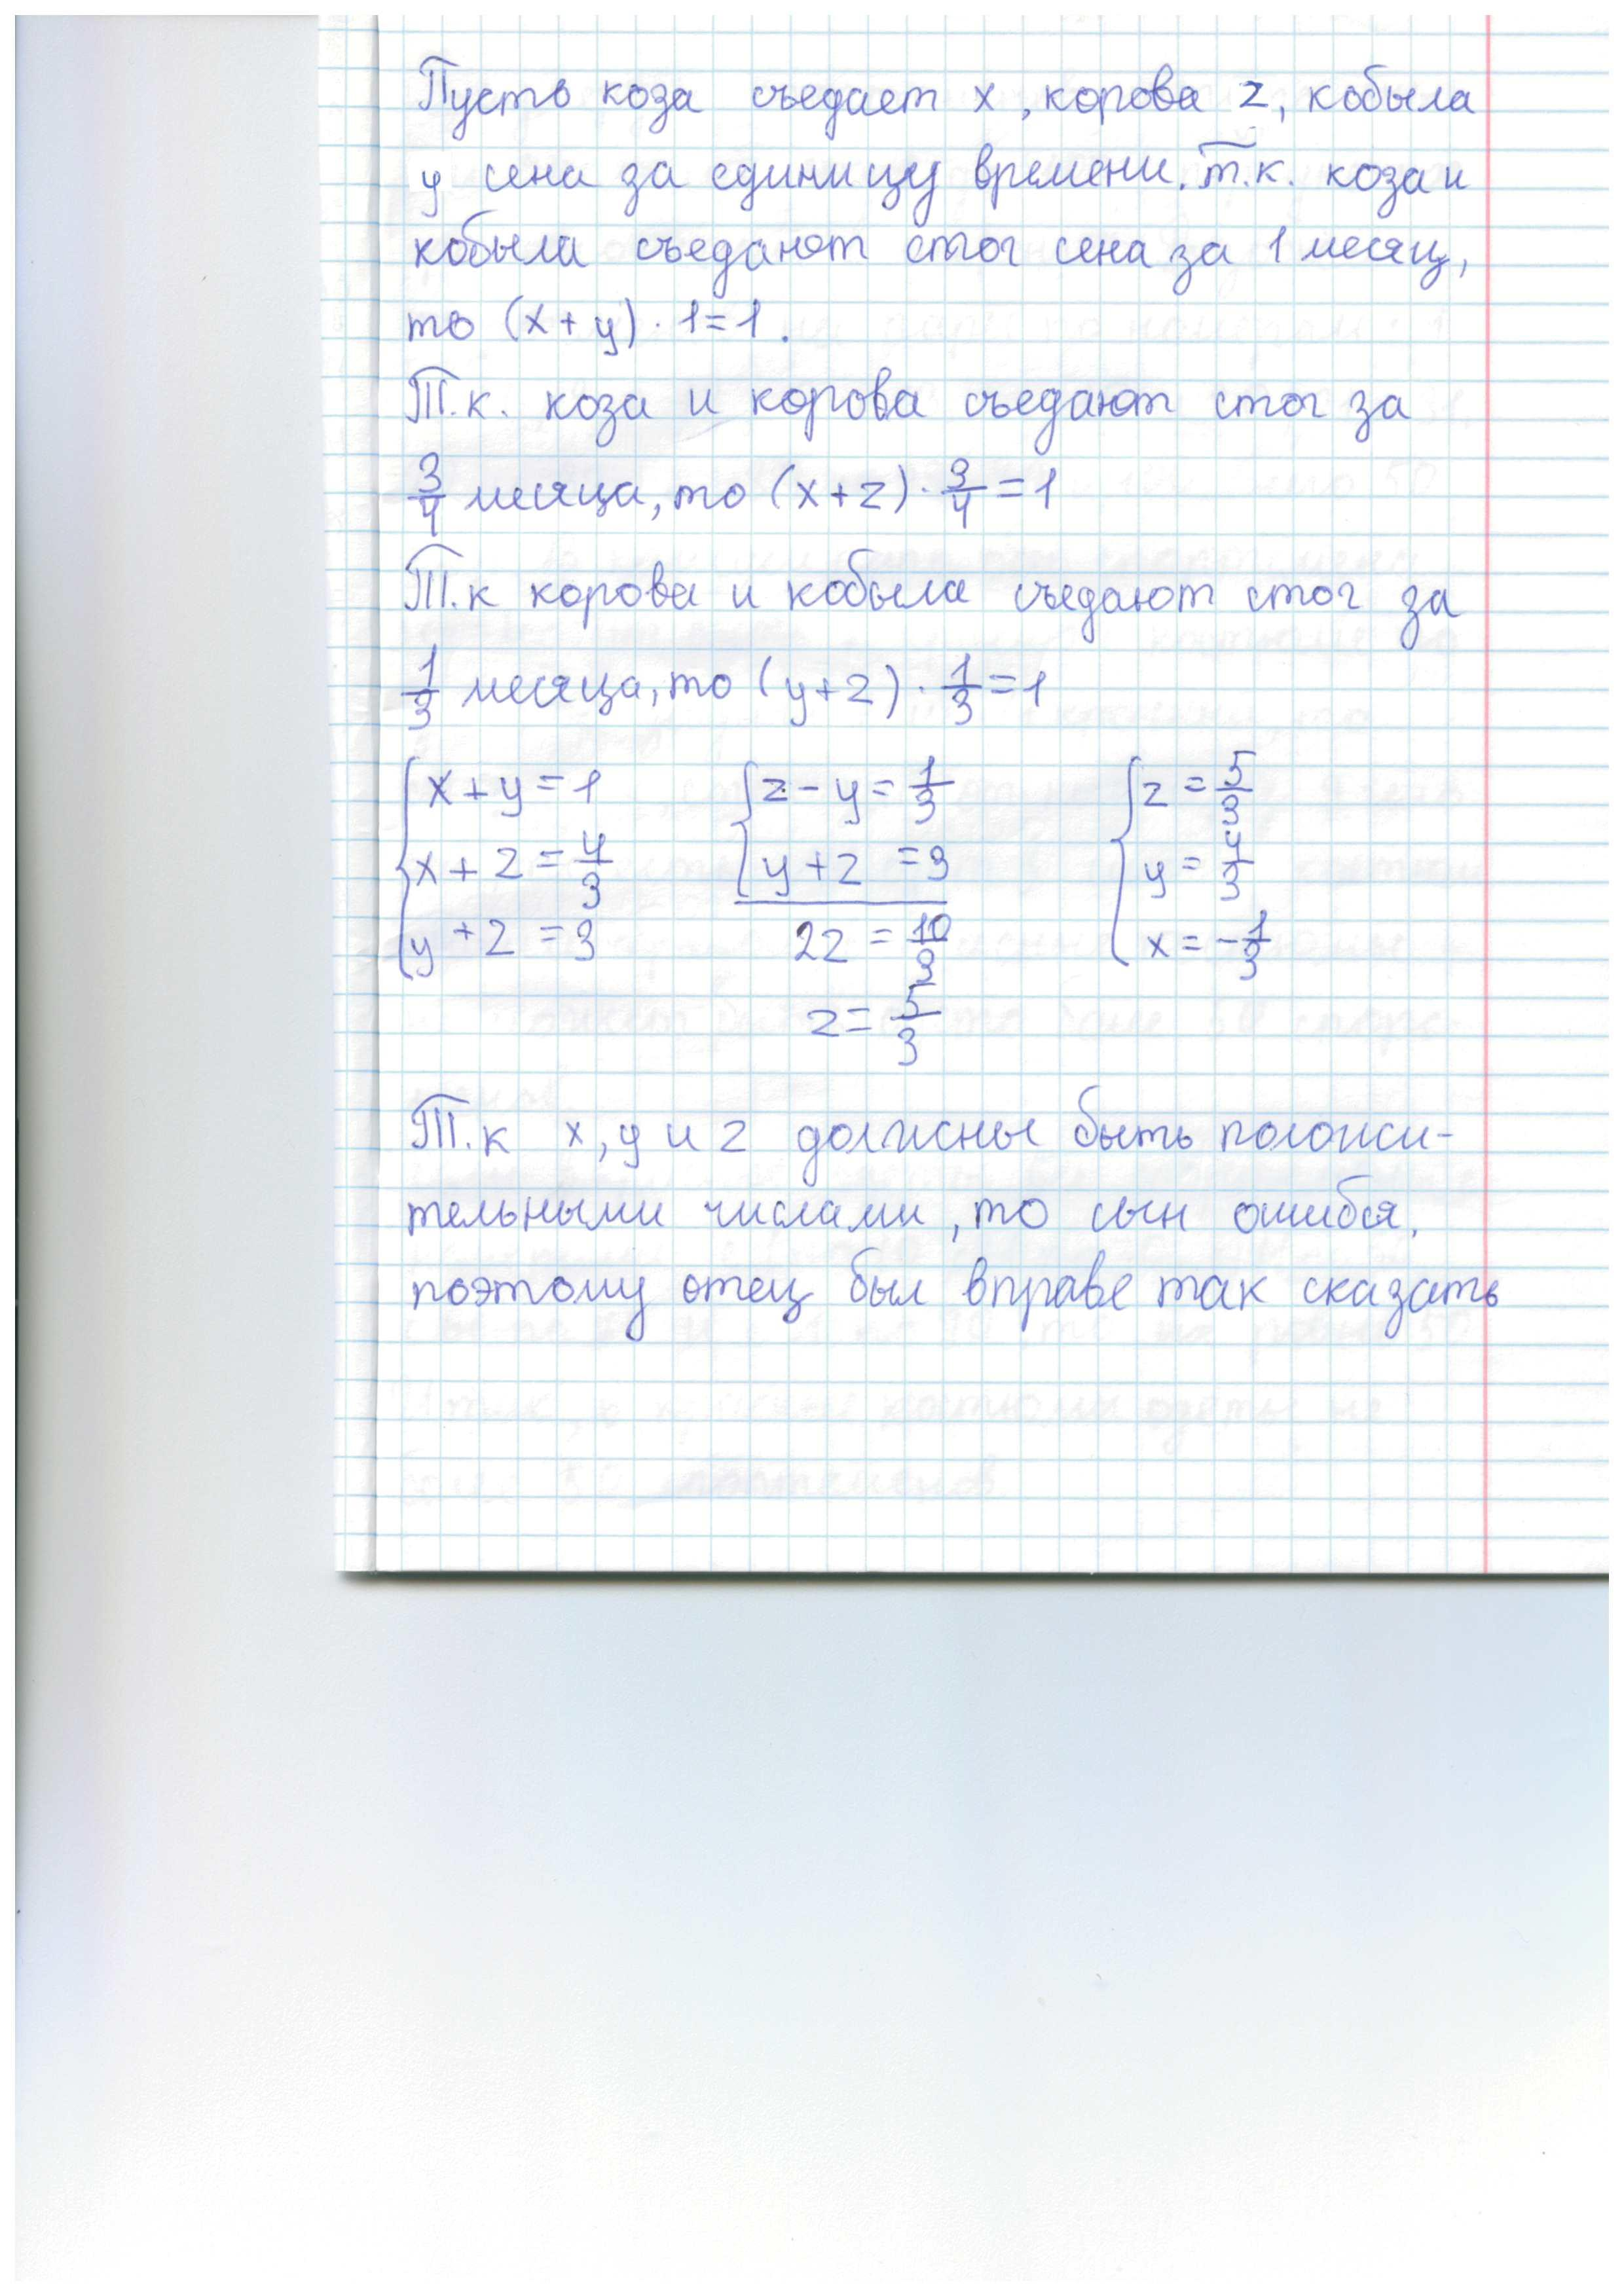 Пусть коза съедает x, корова z, кобыла
y сена за единицу времени. т.к. коза и
кобыла съедают стог сена за 1 месяц,
то (x+y)·1=1.
Т.к. коза и корова съедают стог за
3/4 месяца, то (x+z)·3/4=1
Т.к корова и кобыла съедают стог за
1/3 месяца, то (y+z)·1/3=1
{x+y=1 {z-y=1/3 {z=5/3
x+z=4/3 y+z=3 y=4/3
y+z=3 2z=10/3 x=-1/3
z=5/3
Т.к x, y и z должны быть положи-
тельными числами, то сын ошибся,
поэтому отец был вправе так сказать